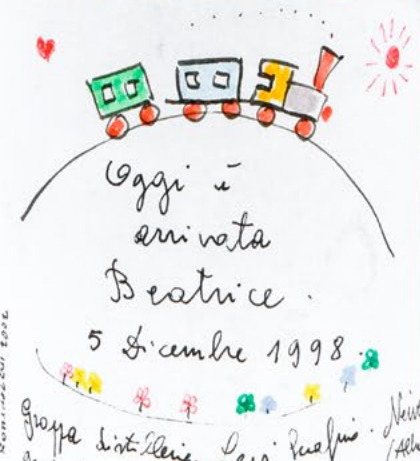 Oggi è
arrivata
Beatrice.
5 Dicembre 1998.
Grappa distilleria Levi Serafino. Neive